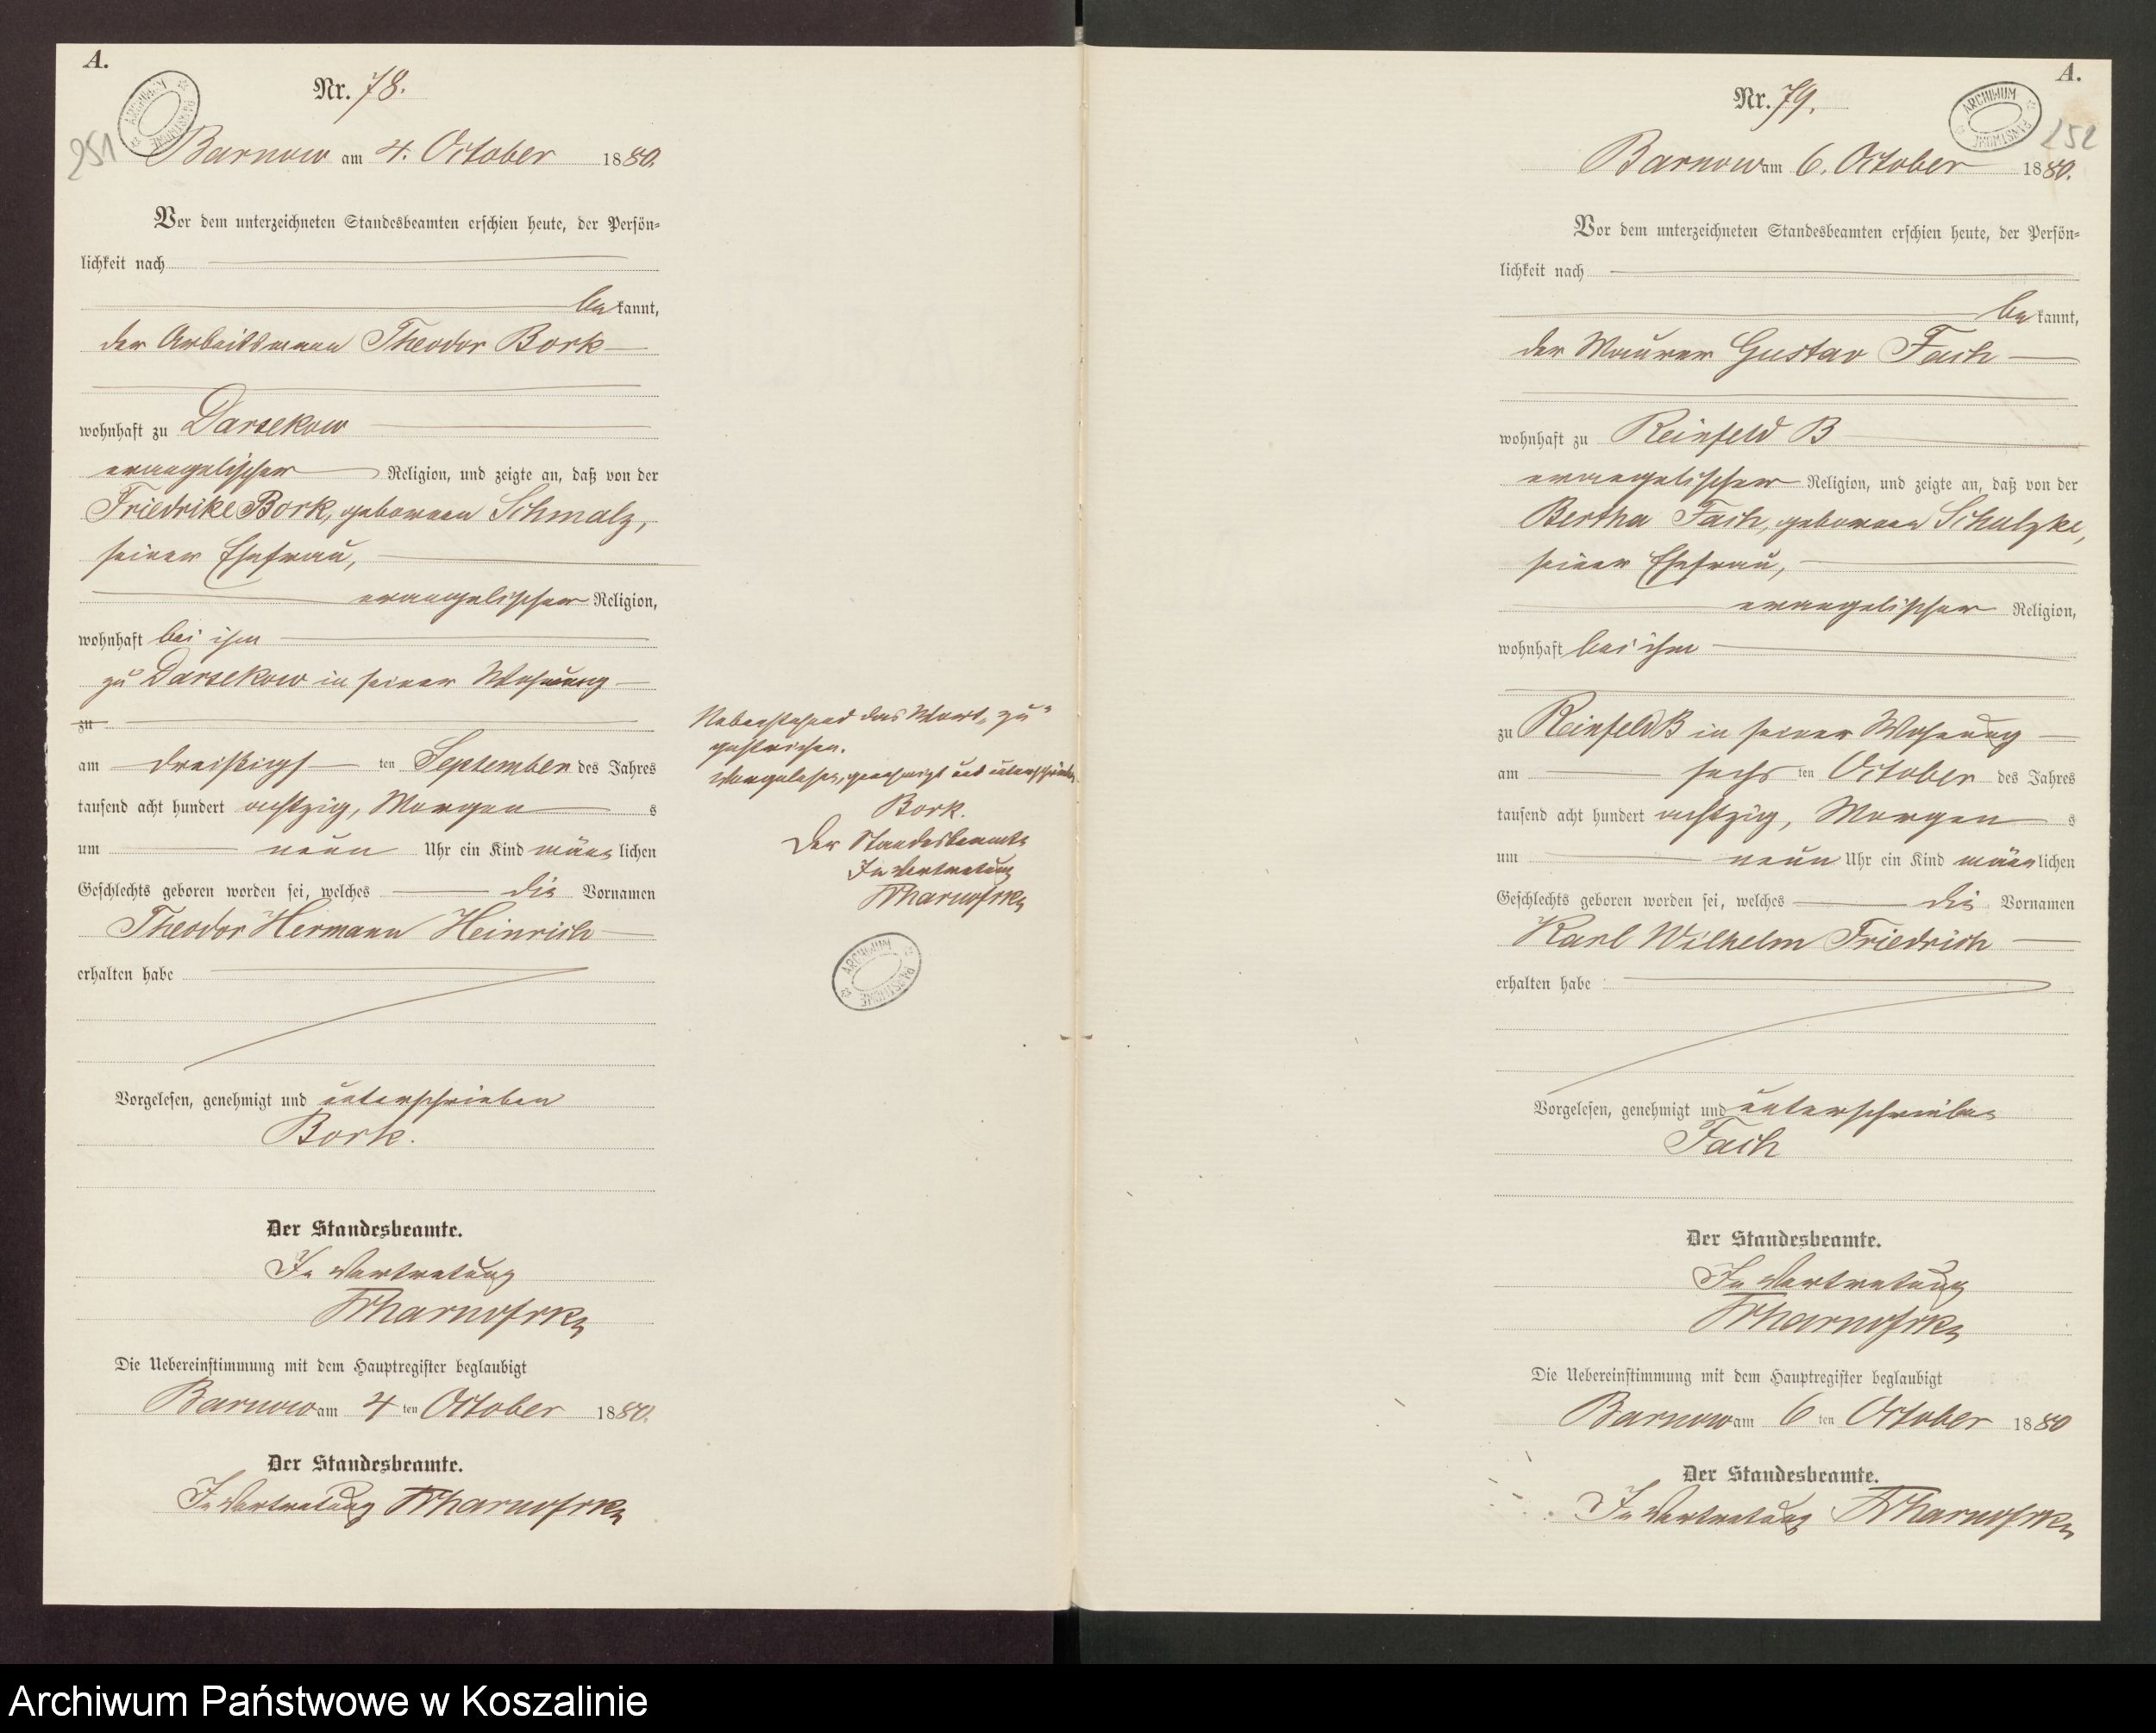 A.
Nr. 78.
251
ARCHIWUM PAŃSTWOWE
Barnow am 4. October 1880.
Vor dem unterzeichneten Standesbeamten erschien heute, der Persön=
lichkeit nach
bekannt,
der Arbeitsmann Theodor Bork
wohnhaft zu Darsekow
evangelischer Religion, und zeigte an, daß von der
Friedrike Bork, geborenen Schmalz,
seiner Ehefrau,
evangelischer Religion,
wohnhaft bei ihm
zu Darsekow in seiner Wohnung
zu
am dreißigsten September des Jahres
tausend acht hundert achtzig, Morgens
um neun Uhr ein Kind männlichen
Geschlechts geboren worden sei, welches die Vornamen
Theodor Hermann Heinrich
erhalten habe
Vorgelesen, genehmigt und unterschrieben
Bork.
Der Standesbeamte.
In Vertretung
Die Uebereinstimmung mit dem Hauptregister beglaubigt
Barnow am 4ten October 1880.
Der Standesbeamte.
In Vertretung
Nebenstehend das Wort „zu“
gestrichen.
Vorgelesen, genehmigt und unterschrieben
Bork.
Der Standesbeamte
In Vertretung
ARCHIWUM PAŃSTWOWE
A.
Nr. 79.
ARCHIWUM PAŃSTWOWE
252
Barnow am 6. October 1880.
Vor dem unterzeichneten Standesbeamten erschien heute, der Persön=
lichkeit nach
bekannt,
der Maurer Gustav Fach
wohnhaft zu Reinfeld B
evangelischer Religion, und zeigte an, daß von der
Bertha Fach, geborenen Schulzke,
seiner Ehefrau,
evangelischer Religion,
wohnhaft bei ihm
zu Reinfeld B in seiner Wohnung
am sechsten October des Jahres
tausend acht hundert achtzig, Morgens
um neun Uhr ein Kind männlichen
Geschlechts geboren worden sei, welches die Vornamen
Karl Wilhelm Friedrich
erhalten habe
Vorgelesen, genehmigt und unterschrieben
Fach
Der Standesbeamte.
In Vertretung
Die Uebereinstimmung mit dem Hauptregister beglaubigt
Barnow am 6ten October 1880
Der Standesbeamte.
In Vertretung
Archiwum Państwowe w Koszalinie